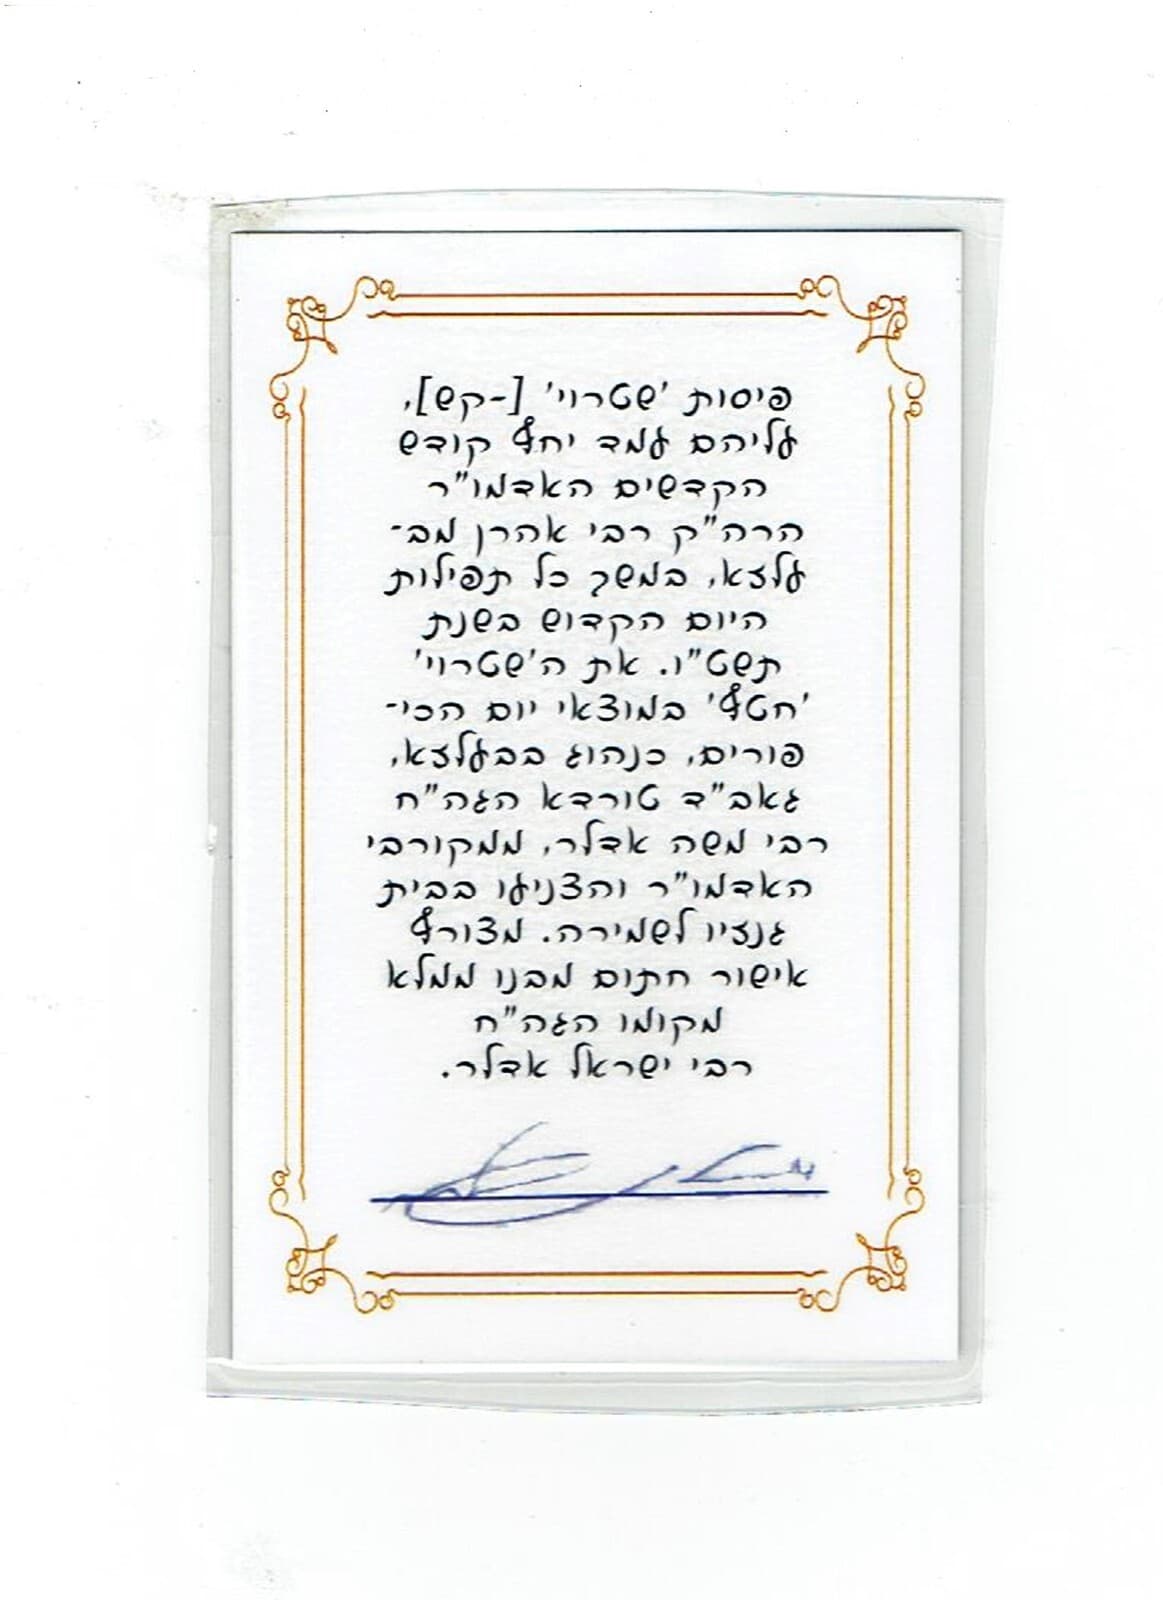 פיסות 'שטרוי' [-קש],
עליהם עמד יחף קודש
הקדשים האדמו"ר
הרה"ק רבי אהרן מב-
עלזא, במשך כל תפילות
היום הקדוש בשנת
תשט"ו. את ה'שטרוי'
'חטף' במוצאי יום הכי-
פורים, כנהוג בבעלזא,
גאב"ד טורדא הגה"ח
רבי משה אדלר, ממקורבי
האדמו"ר והצניעו בבית
גנזיו לשמירה. מצורף
אישור חתום מבנו ממלא
מקומו הגה"ח
רבי ישראל אדלר.